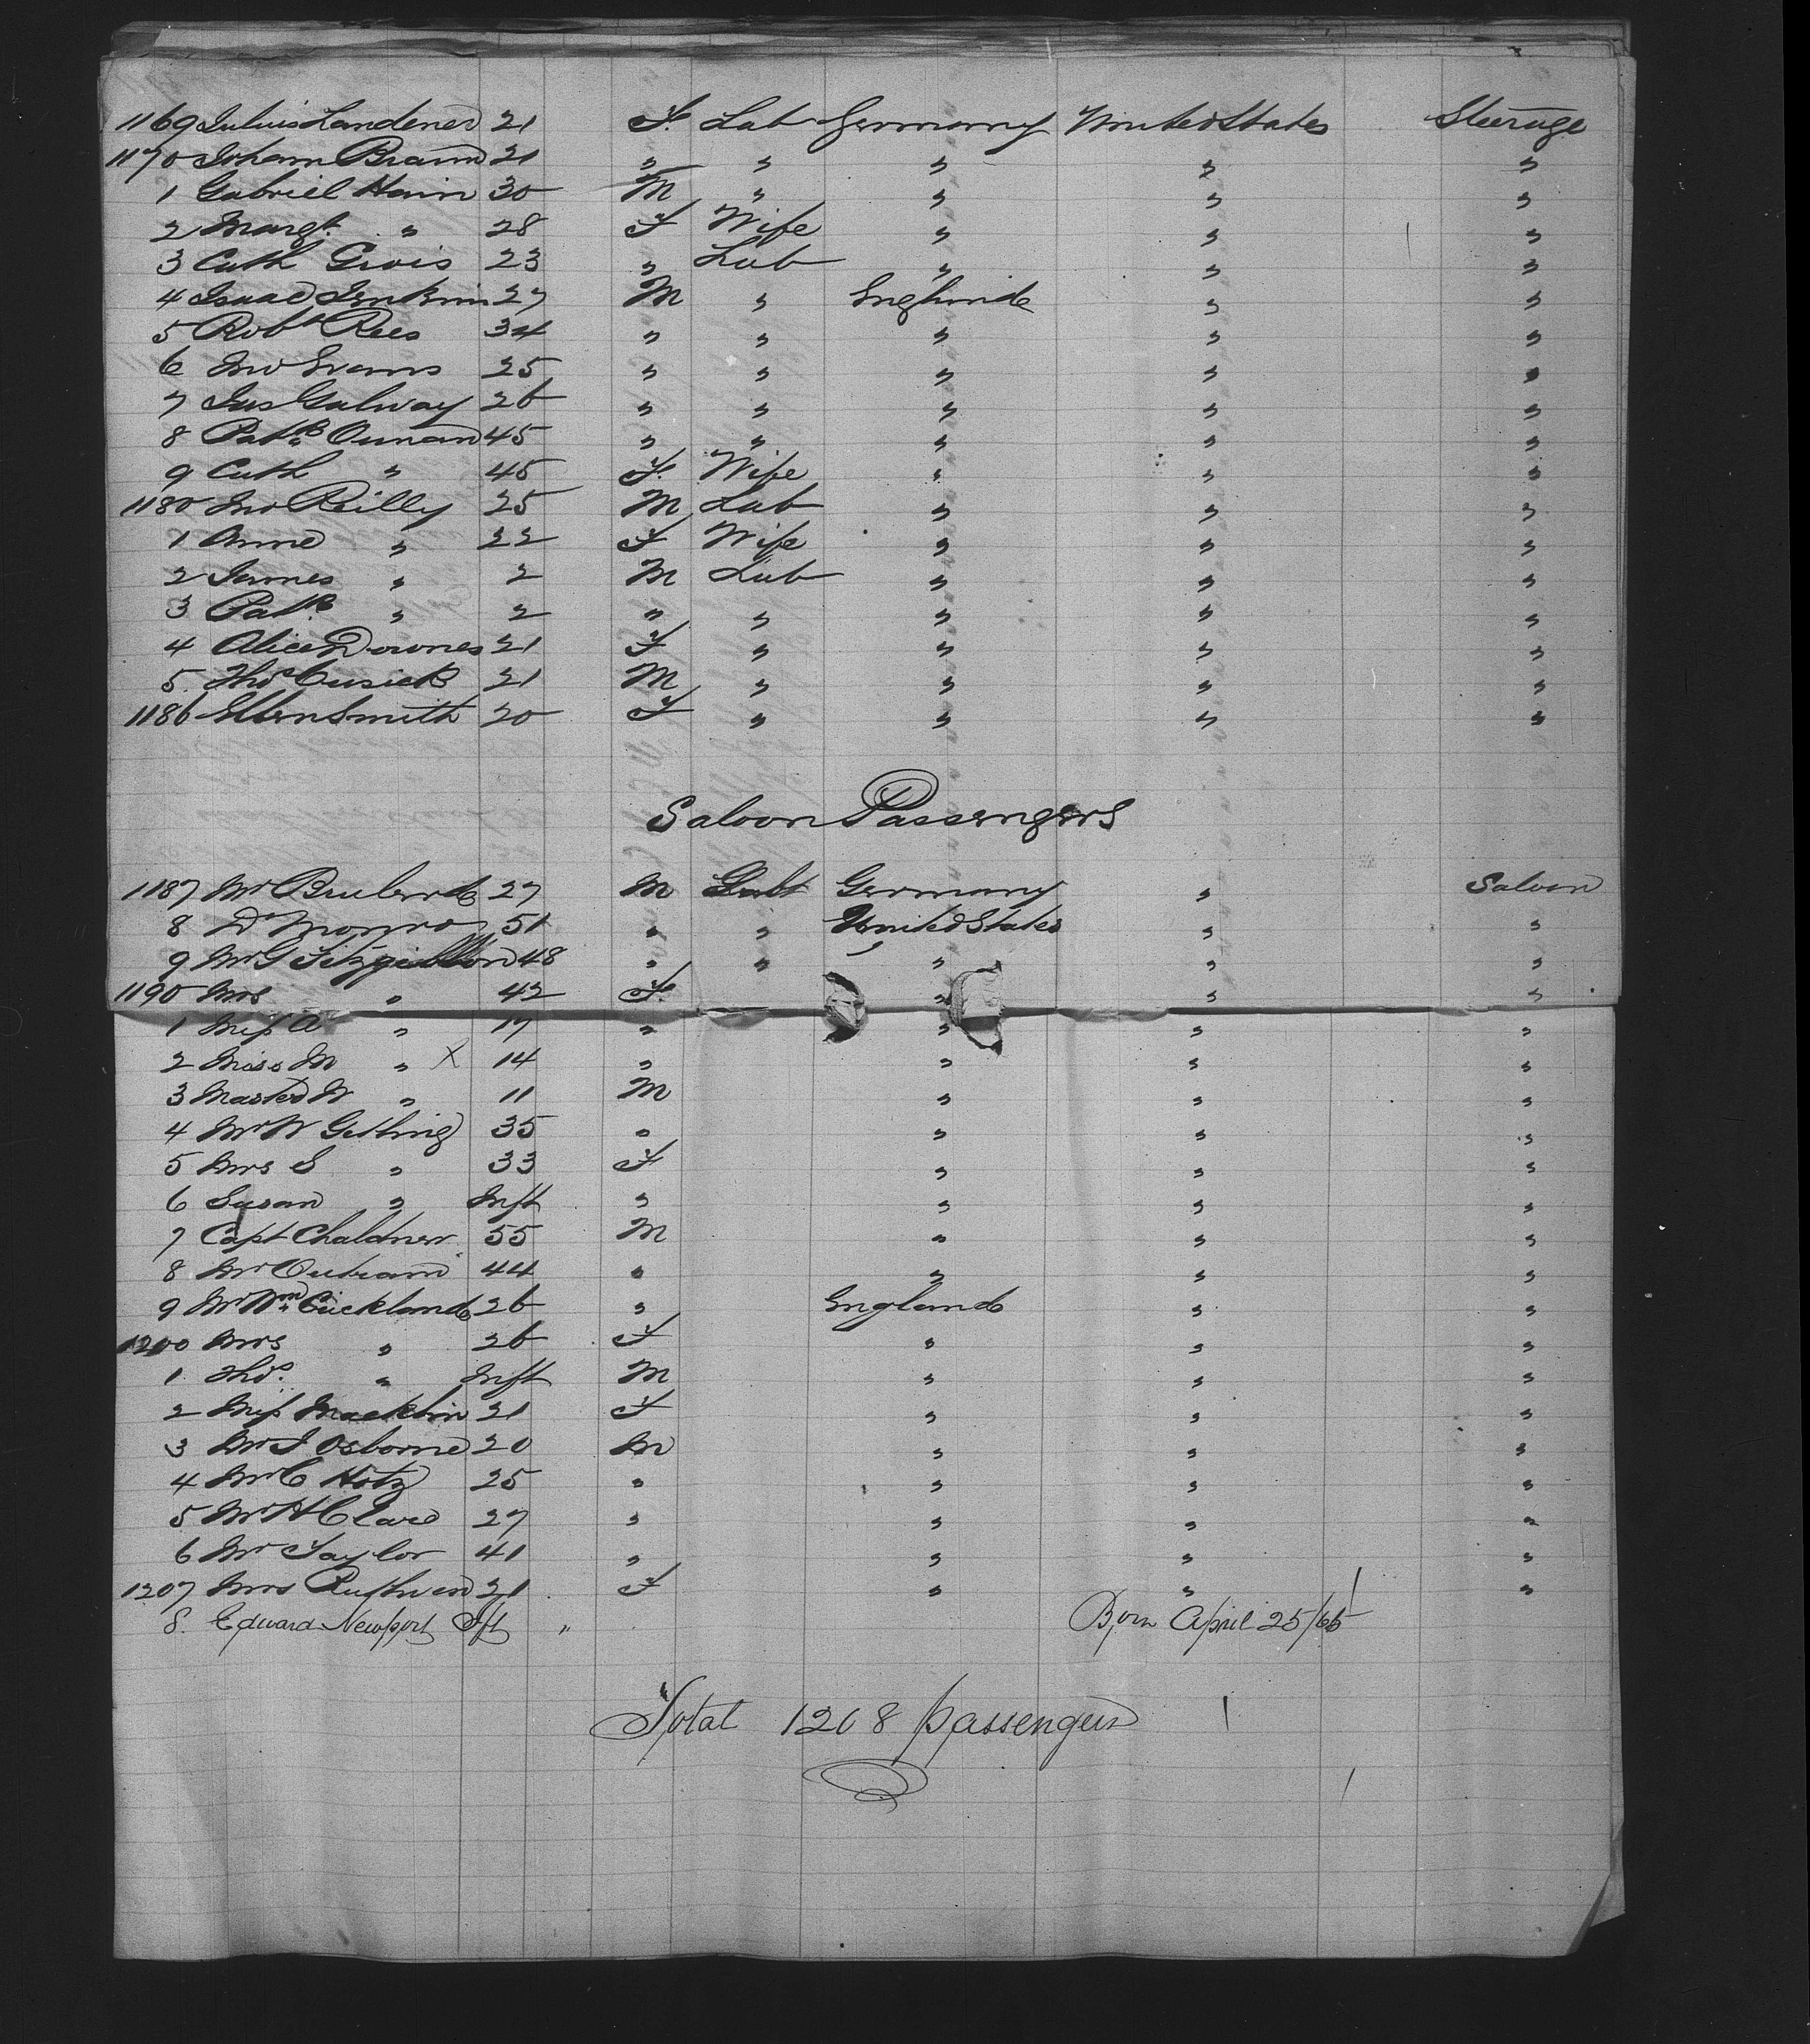 1169 Julius Landener 21 F. Lab Germany United States Steerage
1170 Johann Braun 21 " " " " "
1 Gabriel Hain 30 M " " " "
2 Margt. " 28 F Wife " " "
3 Cath Grois 23 " Lab " " "
4 Isaac Jenkin 27 M " England " "
5 Robt Rees 34 " " " " "
6 Jno Evans 25 " " " " "
7 Jas Galway 26 " " " " "
8 Patk 45 " " " " "
9 Cath " 45 F. Wife " " "
1180 Jno Reilly 25 M Lab " " "
1 Anne " 22 F Wife " " "
2 James " 2 M Lab " " "
3 Patk " 2 " " " " "
4 Alice Downes 21 F " " " "
5. Thos Cusick 21 M " " " "
1186 Ellen Smith 20 F " " " "
Saloon Passengers
1187 Mr 27 M Gent Germany " Saloon
8 Dr Monro 51 " " United States " "
9 Mr G Fitzgibbon 48 " " " " "
1190 Mrs " 42 F. " " "
1 Miss A " 17 " " " "
2 Miss M " X 14 " " " "
3 Master W " 11 M " " "
4 Mr W Gething 35 " " " "
5 Mrs S " 33 F " " "
6 Susan " Inft " " " "
7 Capt Chaldner 55 M " " "
8 Mr Outram 44 " " " "
9 Mr Wm Cuckland 26 " England " "
1200 Mrs " 26 F " " "
1 Thos. " Inft M " " "
2 Miss Macklin 21 F " " "
3 Mr J Osborne 20 M " " "
4 Mr C Hotz 25 " " " "
5 Mr H Clare 27 " " " "
6 Mr Taylor 41 " " " "
1207 Mrs Ruthven 21 F " " "
8. Edward Newport Ift " Born April 25/66
Total 1208 passengers